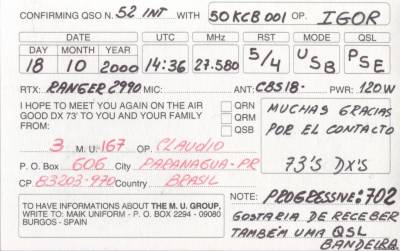 CONFIRMING QSO N. 52 INT WITH 50KCB001 OP. IGOR
DATE UTC MHz RST MODE QSL
DAY MONTH YEAR
18 10 2000 14:36 27.580 5/4 USB PSE
RTX: RANGER 2990 MIC: ANT: CBS18- PWR: 120W
I HOPE TO MEET YOU AGAIN ON THE AIR
GOOD DX 73' TO YOU AND YOUR FAMILY
FROM:
QRN
QRM
QSB
MUCHAS GRACIAS
POR EL CONTACTO
73'S DX'S
3 M. U. 167 OP. CLAUDIO
P. O. Box 606 City PARANAGUA-PR
CP 83203-970 Country BRASIL
TO HAVE INFORMATIONS ABOUT THE M. U. GROUP,
WRITE TO: MAIK UNIFORM - P. O. BOX 2294 - 09080
BURGOS - SPAIN
NOTE: PROGRESSIVE: 702
GOSTARIA DE RECEBER
TAMBÉM UMA QSL
BANDEIRA.